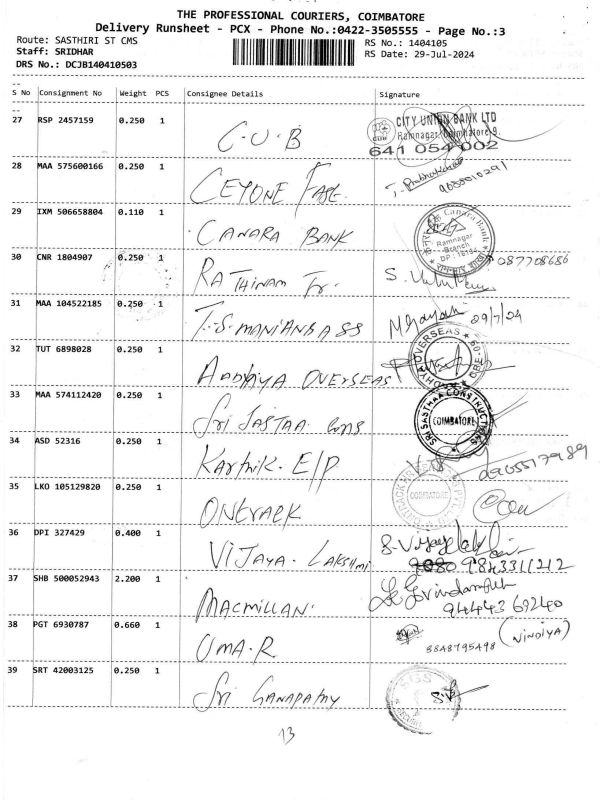 THE PROFESSIONAL COURIERS, COIMBATORE
Delivery Runsheet - PCX - Phone No.:0422-3505555 - Page No.:3
Route: SASTHIRI ST CMS
RS No.: 1404105
Staff: SRIDHAR
RS Date: 29-Jul-2024
DRS No.: DCJB140410503
S No Consignment No Weight PCS Consignee Details Signature
27 RSP 2457159 0.250 1 C.U.B
CITY UNION BANK LTD
Ramnagar, Coimbatore 9.
641 054 002
28 MAA 575600166 0.250 1
29 IXM 506658804 0.110 1 CANARA BANK
Canara Bank
Ramnagar
Branch
30 CNR 1804907 0.250 1 RATHINAM
31 MAA 104522185 0.250 1
29/7/24
32 TUT 6898028 0.250 1 AADHYA OVERSEAS
33 MAA 574112420 0.250 1 Sri SASTAA cons
SRI SASTHAA CONSTRUCTIONS
COIMBATORE
34 ASD 52316 0.250 1 Karthik. E/P
35 LKO 105129820 0.250 1
COIMBATORE
36 DPI 327429 0.400 1 VIJAYA. LAKSHMI
9843311212
37 SHB 500052943 2.200 1 MACMILLAN.
94443 69240
38 PGT 6930787 0.660 1 UMA.R
8848795498 (VINDIYA)
39 SRT 42003125 0.250 1 Sri GANAPATHY
13